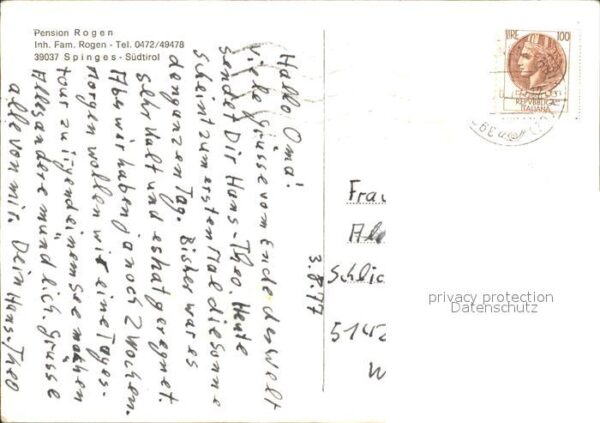 Pension Rogen
Inh. Fam. Rogen - Tel. 0472/49478
39037 Spinges - Südtirol
LIRE 100
REPVBBLICA
ITALIANA
Hallo Oma!
Viele Grüsse vom Ende der Welt
sendet Dir Hans-Theo. Heute
scheint zum ersten Mal die Sonne
den ganzen Tag. Bisher war es
sehr kalt und es hat geregnet.
Aber wir haben ja noch 2 Wochen.
Morgen wollen wir eine Tages-
tour zu irgendeinem See machen
Alles andere mündlich. Grüsse
alle von mir. Dein Hans-Theo
3.8.77
Frau
Schlic
5142
W
privacy protection
Datenschutz